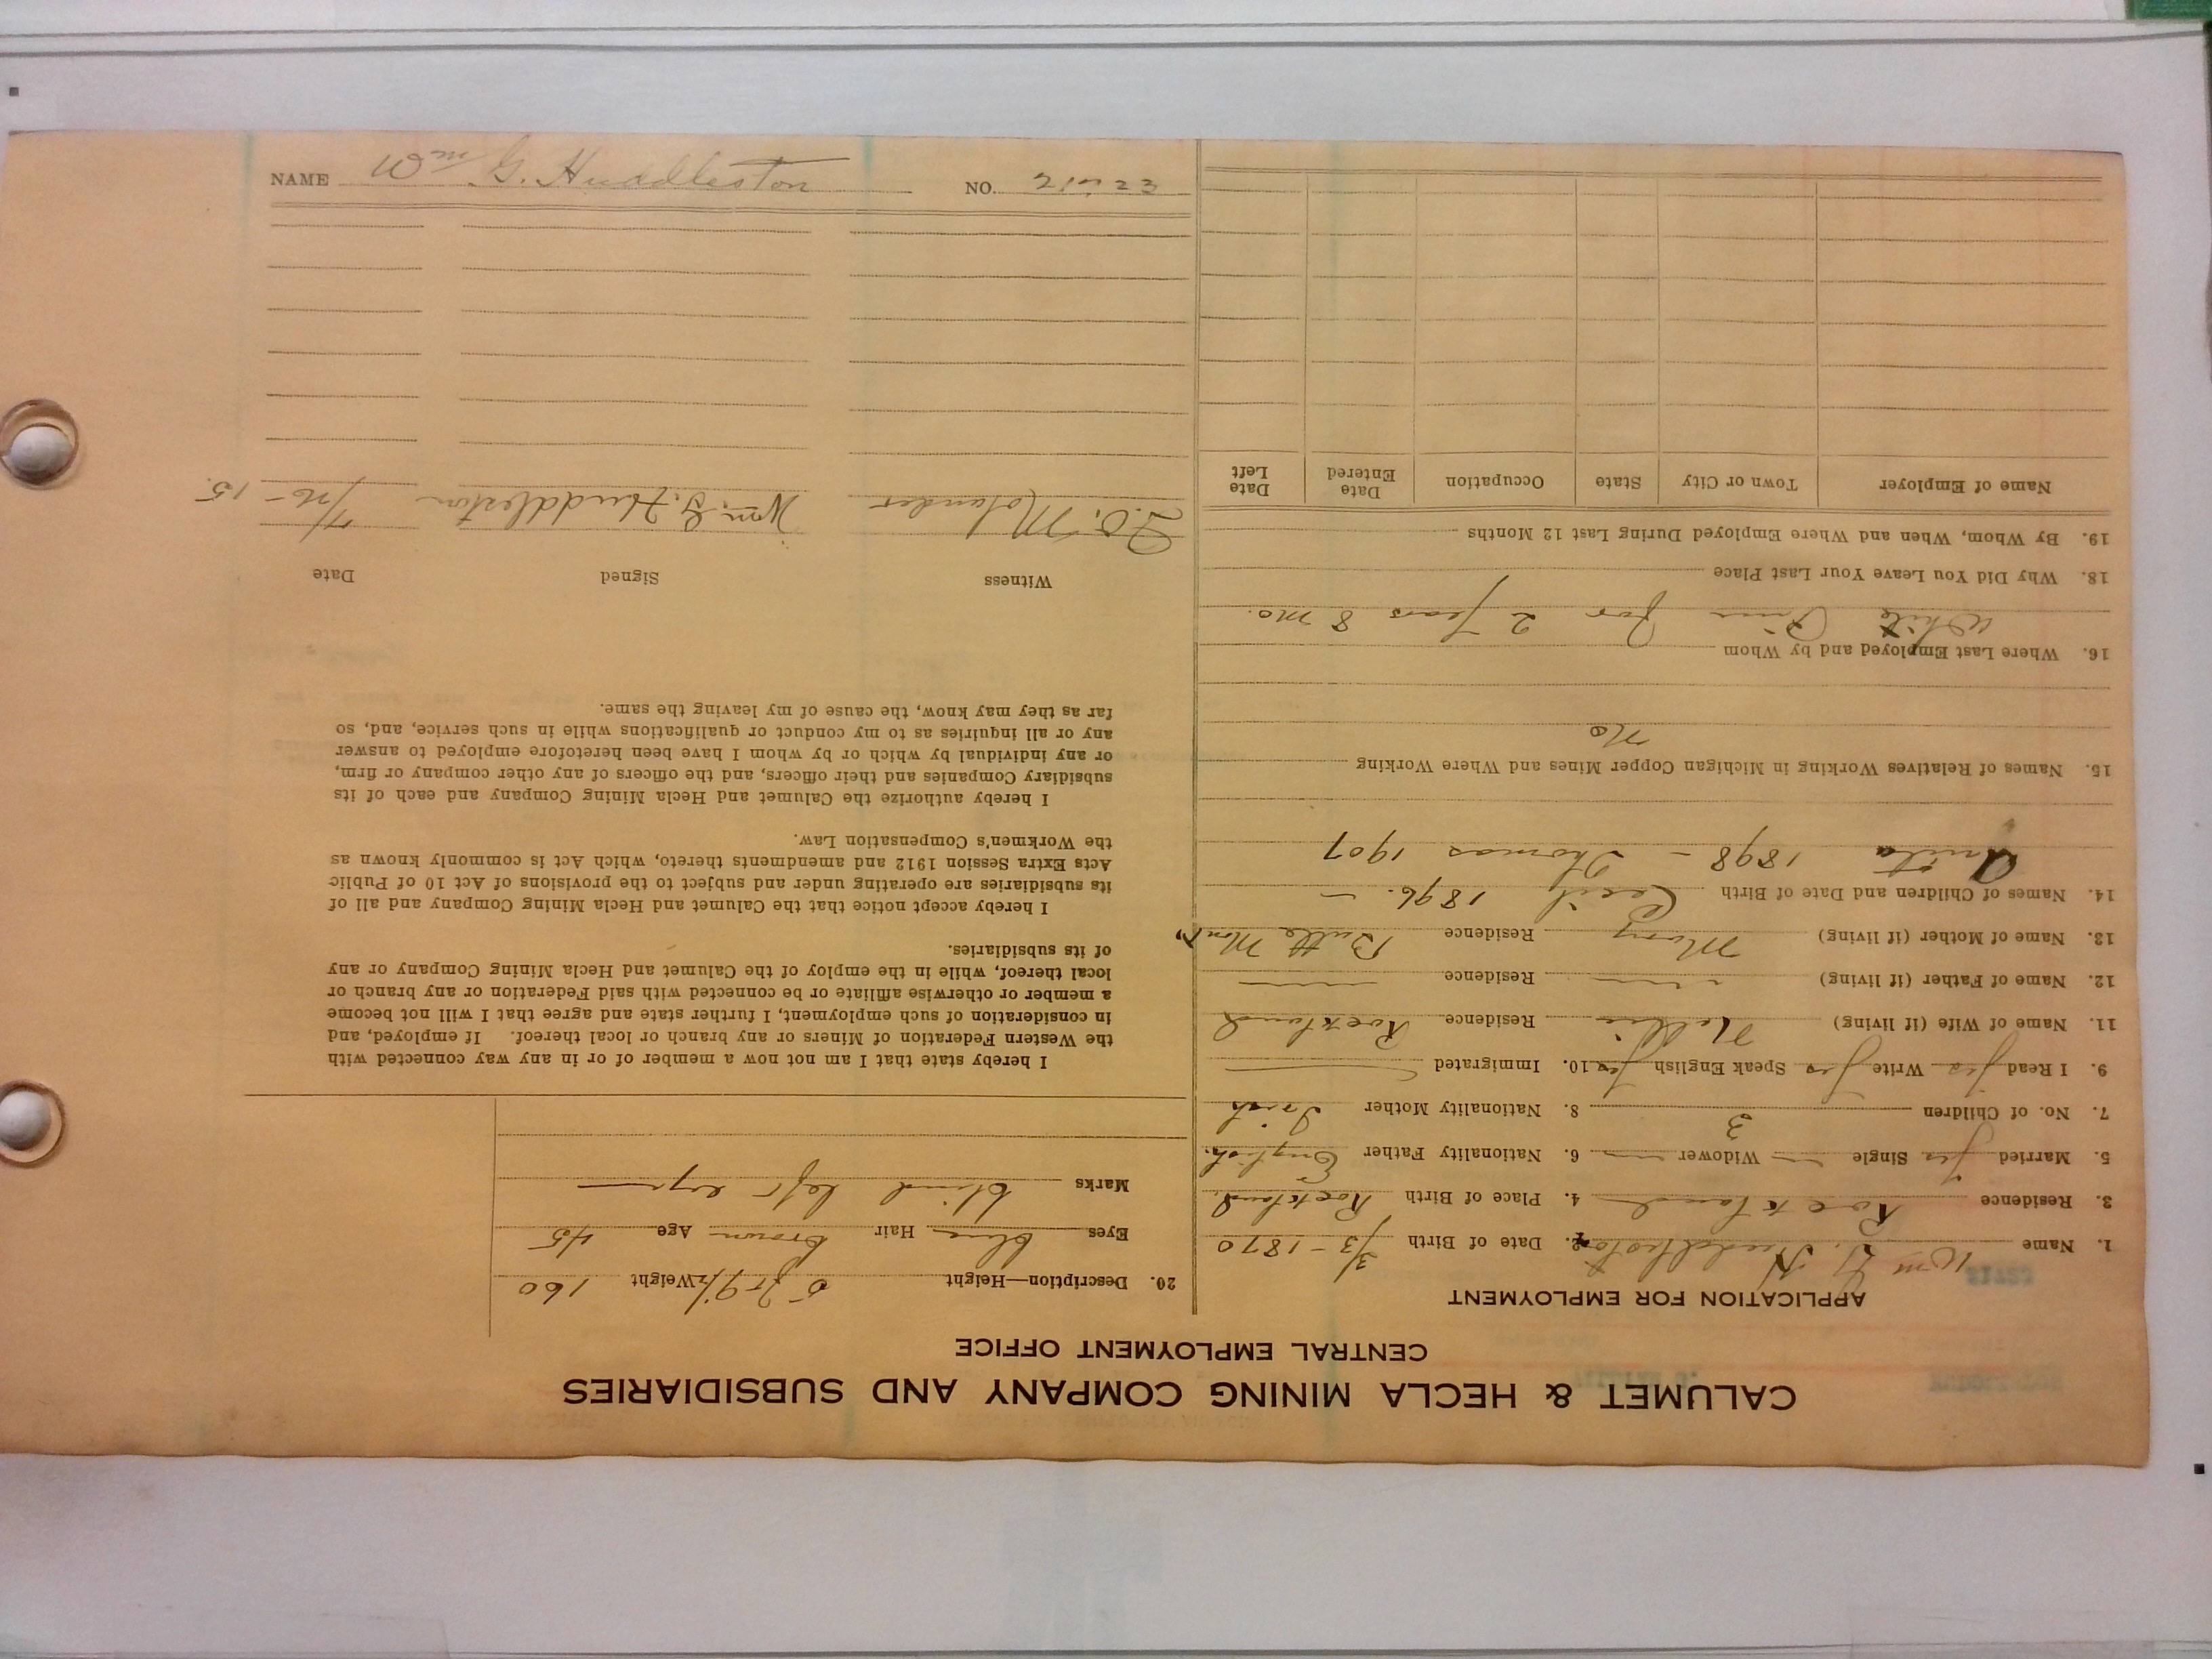 CALUMET & HECLA MINING COMPANY AND SUBSIDIARIES
CENTRAL EMPLOYMENT OFFICE
APPLICATION FOR EMPLOYMENT
1. Name Wm G. Huddleston 2. Date of Birth 3/3-1870
3. Residence Rockland 4. Place of Birth Rockland.
5. Married yes Single — Widower — 6. Nationality Father English.
7. No. of Children 3 8. Nationality Mother Irish
9. I Read yes Write yes Speak English yes 10. Immigrated —
11. Name of Wife (if living) Nellie Residence Rockland
12. Name of Father (if living) — Residence —
13. Name of Mother (if living) Mary Residence Butte Mont,
14. Names of Children and Date of Birth Cecil 1896. —
Anita 1898 - Thomas 1907
15. Names of Relatives Working in Michigan Copper Mines and Where Working
No
16. Where Last Employed and by Whom
White Pine for 2 years 8 mo.
18. Why Did You Leave Your Last Place
19. By Whom, When and Where Employed During Last 12 Months
Name of Employer Town or City State Occupation Date Entered Date Left
20. Description—Height 5 ft 9 1/2 Weight 160
Eyes blue Hair brown Age 45
Marks blind left eye —
I hereby state that I am not now a member of or in any way connected with
the Western Federation of Miners or any branch or local thereof. If employed, and
in consideration of such employment, I further state and agree that I will not become
a member or otherwise affiliate or be connected with said Federation or any branch or
local thereof, while in the employ of the Calumet and Hecla Mining Company or any
of its subsidiaries.
I hereby accept notice that the Calumet and Hecla Mining Company and all of
its subsidiaries are operating under and subject to the provisions of Act 10 of Public
Acts Extra Session 1912 and amendments thereto, which Act is commonly known as
the Workmen's Compensation Law.
I hereby authorize the Calumet and Hecla Mining Company and each of its
subsidiary Companies and their officers, and the officers of any other company or firm,
or any individual by which or by whom I have been heretofore employed to answer
any or all inquiries as to my conduct or qualifications while in such service, and, so
far as they may know, the cause of my leaving the same.
Witness Signed Date
Molander Wm. G. Huddleston 15.
NAME Wm G. Huddleston NO.